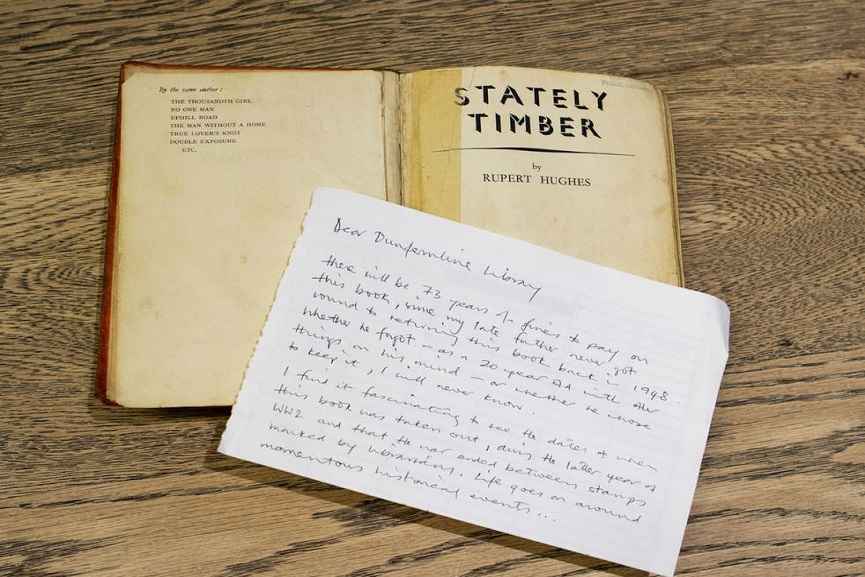 By the same author:
THE THOUSANDTH GIRL
NO ONE MAN
UPHILL ROAD
THE MAN WITHOUT A HOME
TRUE LOVER'S KNOT
DOUBLE EXPOSURE
ETC.
STATELY
TIMBER
by
RUPERT HUGHES
Dear Dunfermline Library
there will be 73 years of fines to pay on
this book, since my late father never got
round to returning this book back in 1948.
Whether he forgot - as a 20-year old with other
things on his mind - or whether he chose
to keep it, I will never know.
I find it fascinating to see the dates of when
this book was taken out, during the latter year of
WW2 and that the war ended between stamps
marked by librarians. Life goes on around
momentous historical events...